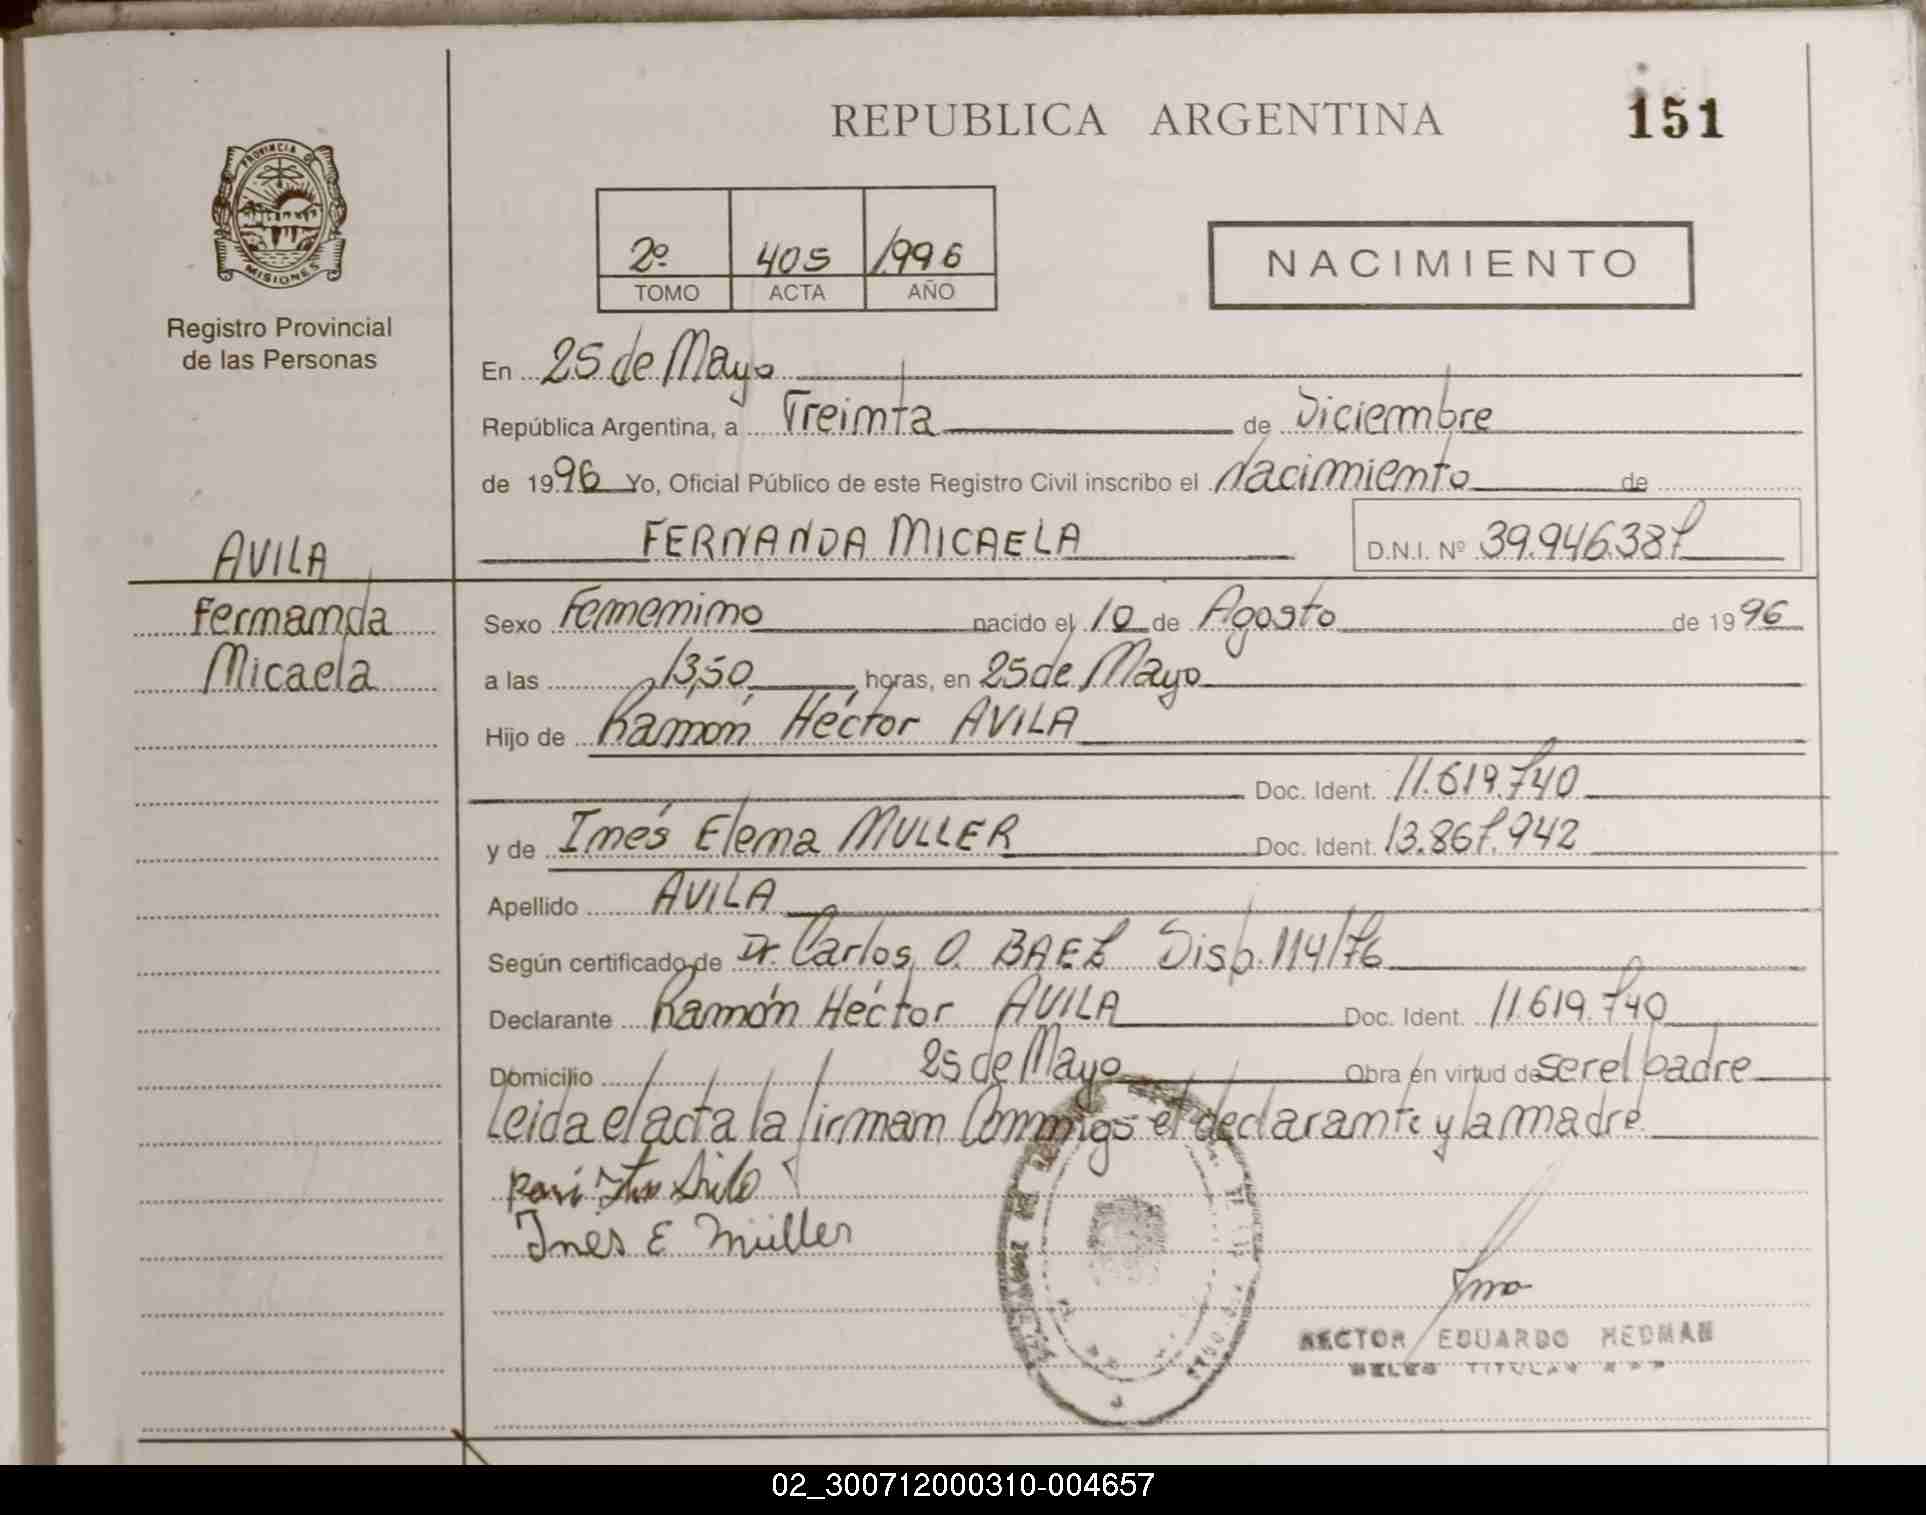 REPUBLICA ARGENTINA
151
PROVINCIA DE
MISIONES
Registro Provincial
de las Personas
2º 405 1996
TOMO ACTA AÑO
NACIMIENTO
En 25 de Mayo
República Argentina, a Treinta de Diciembre
de 1996 Yo, Oficial Público de este Registro Civil inscribo el Nacimiento de
FERNANDA MICAELA D.N.I. Nº 39.946.387
AVILA
Fernanda
Micaela
Sexo Femenino nacido el 10 de Agosto de 1996
a las 13,50 horas, en 25 de Mayo
Hijo de Ramón Héctor AVILA
Doc. Ident. 11.619.740
y de Inés Elena MULLER Doc. Ident. 13.867.942
Apellido AVILA
Según certificado de Dr. Carlos O. BAEZ Disp. 114/76
Declarante Ramón Héctor AVILA Doc. Ident. 11.619.740
Domicilio 25 de Mayo Obra en virtud de ser el padre
Leida el acta la firman Conmigo el declarante y la madre
Inés E Müller
HECTOR EDUARDO HEDMAN
TITULAR
02_300712000310-004657